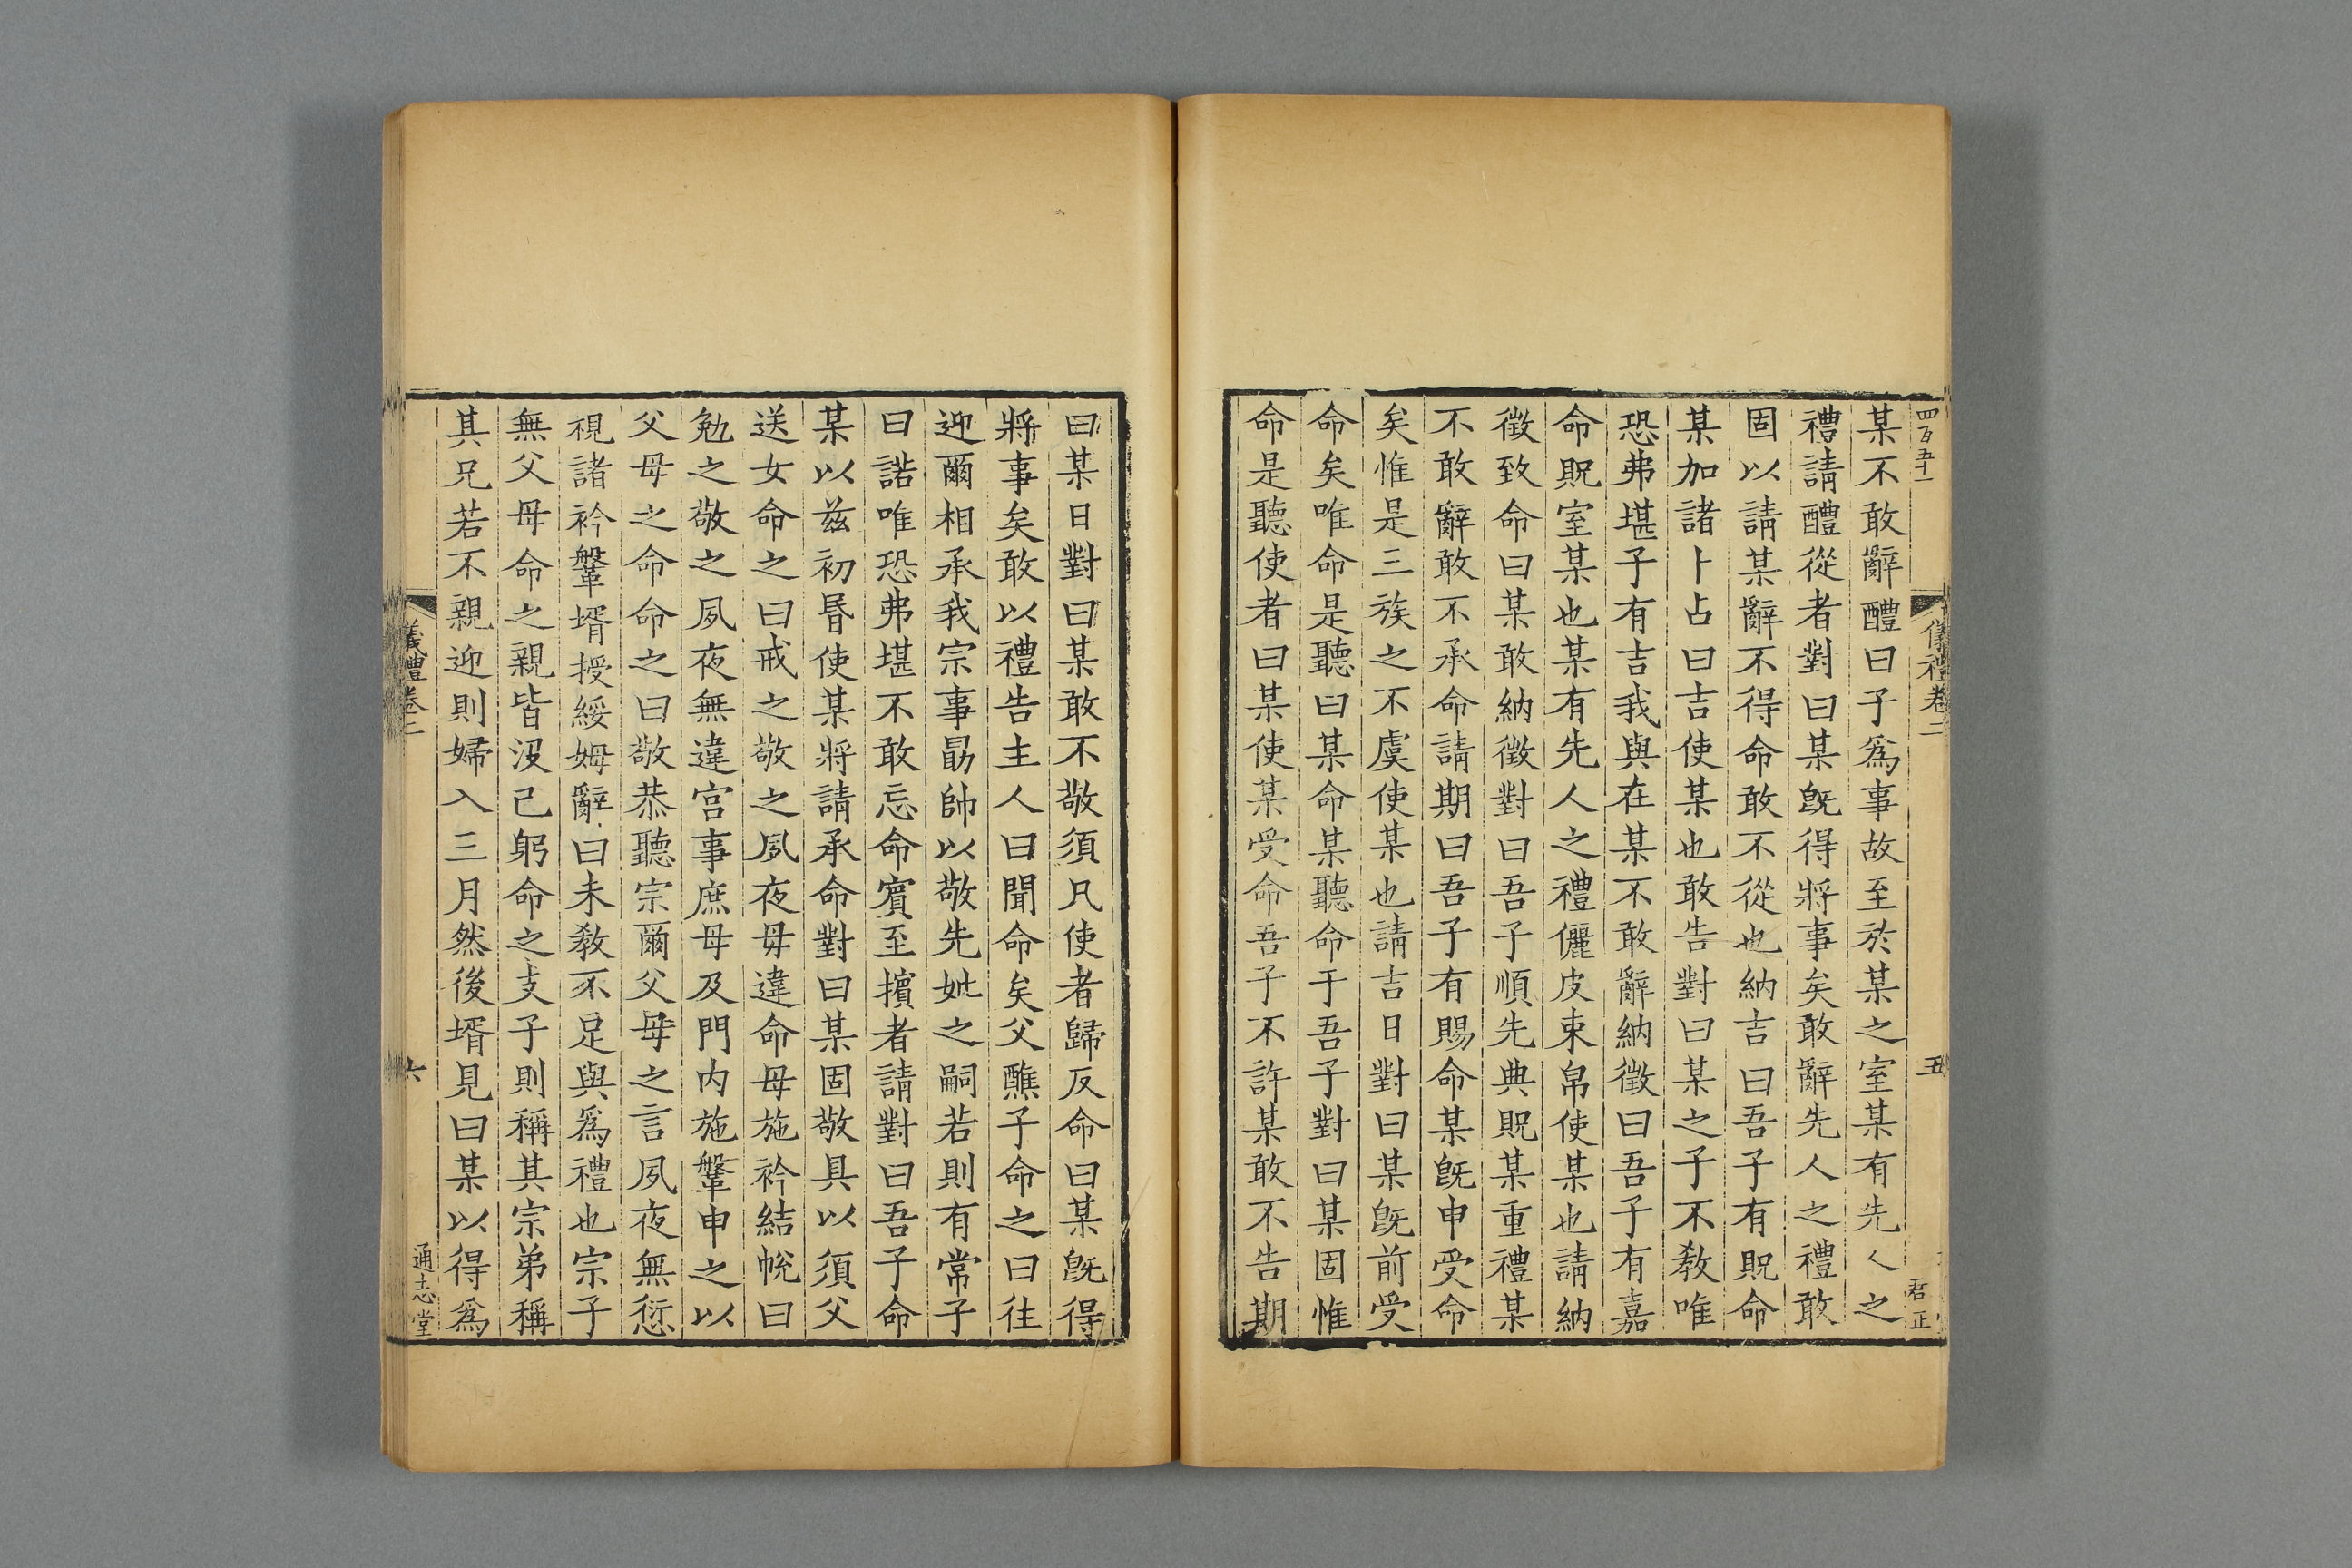 四百五十一
儀禮卷二
五
君正
某不敢辭醴曰子爲事故至於某之室某有先人之
禮請醴從者對曰某旣得將事矣敢辭先人之禮敢
固以請某辭不得命敢不從也納吉曰吾子有貺命
某加諸卜占曰吉使某也敢告對曰某之子不敎唯
恐弗堪子有吉我與在某不敢辭納徵曰吾子有嘉
命貺室某也某有先人之禮儷皮束帛使某也請納
徵致命曰某敢納徵對曰吾子順先典貺某重禮某
不敢辭敢不承命請期曰吾子有賜命某旣申受命
矣惟是三族之不虞使某也請吉日對曰某旣前受
命矣唯命是聽曰某命某聽命于吾子對曰某固惟
命是聽使者曰某使某受命吾子不許某敢不告期
曰某日對曰某敢不敬須凡使者歸反命曰某旣得
將事矣敢以禮告主人曰聞命矣父醮子命之曰往
迎爾相承我宗事勗帥以敬先妣之嗣若則有常子
曰諾唯恐弗堪不敢忘命賓至擯者請對曰吾子命
某以茲初昬使某將請承命對曰某固敬具以須父
送女命之曰戒之敬之夙夜毋違命母施衿結帨曰
勉之敬之夙夜無違宮事庶母及門内施鞶申之以
父母之命命之曰敬恭聽宗爾父母之言夙夜無愆
視諸衿鞶壻授綏姆辭曰未敎不足與爲禮也宗子
無父母命之親皆沒己躬命之支子則稱其宗弟稱
其兄若不親迎則婦入三月然後壻見曰某以得爲
儀禮卷二
六
通志堂